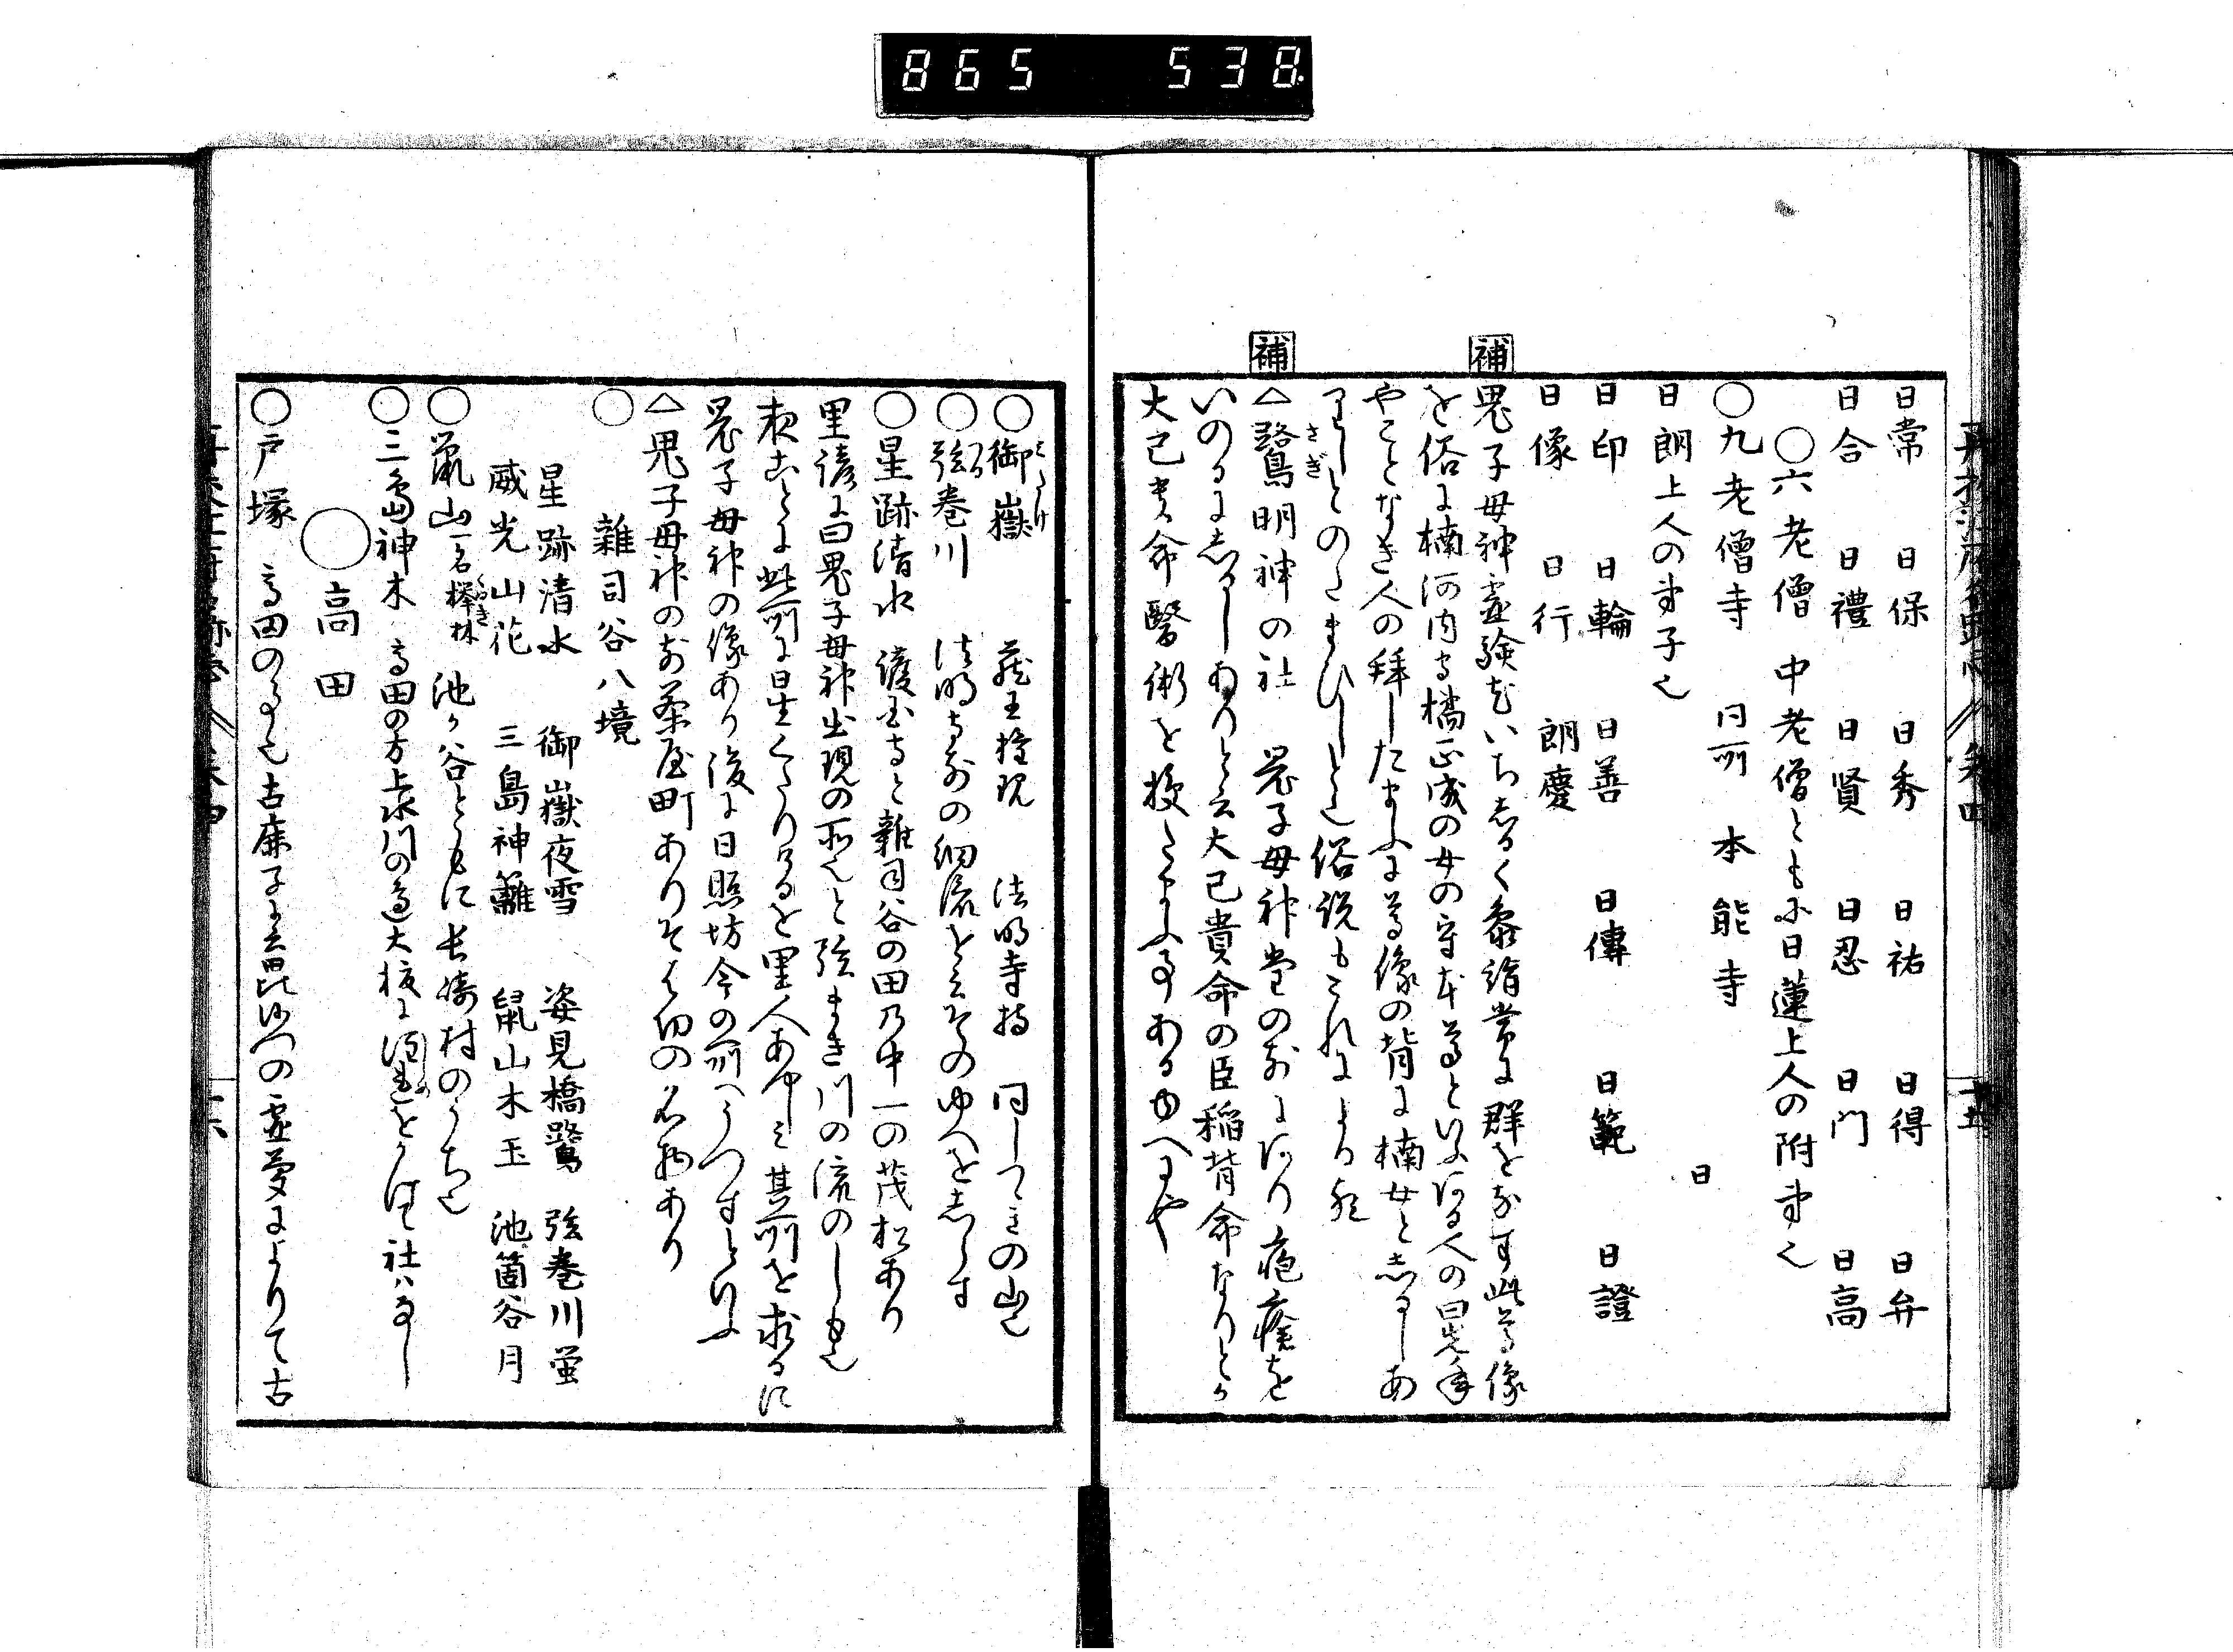 865 538
日常 日保 日秀 日祐 日得 日弁
日合 日禮 日賢 日忍 日門 日高
〇六老僧 中老僧ともに日蓮上人の附弟也
〇九老僧寺 同所 本能寺 日
日朗上人の弟子也
日印 日輪 日善 日傳 日範 日證
日像 日行 朗慶
補 鬼子母神霊験いちしるく参詣常に群をなす此尊像
を俗に楠河内守橘正成の女の守本尊といふ
やことなき人の拜したまふに尊像の背に楠女としるしあ
りしとのたまひしと也俗説もこれによる歟
補 △鷺明神の社 鬼子母神堂の前にあり疱瘡を
さぎ
いのるにしるしありと云大己貴命の臣稲背命なりとか
大己貴命醫術を授たまふ事あるゆへにや
〇御嶽 蔵王権現 法明寺持 同しつゝきの山也
みたけ
〇弦巻川 法明寺前の細流を云そのゆへをしらす
つる
〇星跡清水 護国寺と雜司谷の田乃中一の茂松あり
里諺に曰鬼子母神出現の所也と弦まき川の流のしも也
夜ことに此所に星くたりけるを里人あやしミ其所を求るに
鬼子母神の像あり後に日照坊今の所へうつすといふ
△鬼子母神の前茶屋町ありそは切の名物あり
〇 雜司谷八境
星跡清水 御嶽夜雪 姿見橋鷺 弦巻川蛍
威光山花 三島神籬 鼠山木玉 池箇谷月
〇鼠山一名椚林 池か谷ともに長崎村のうち也
くぬき
〇三島神木 高田の方上水川の邉大椋に注連をかけ社ハなし
〇高田
〇戸塚 高田の事也古廉子に云毘沙門の霊夢によりて古